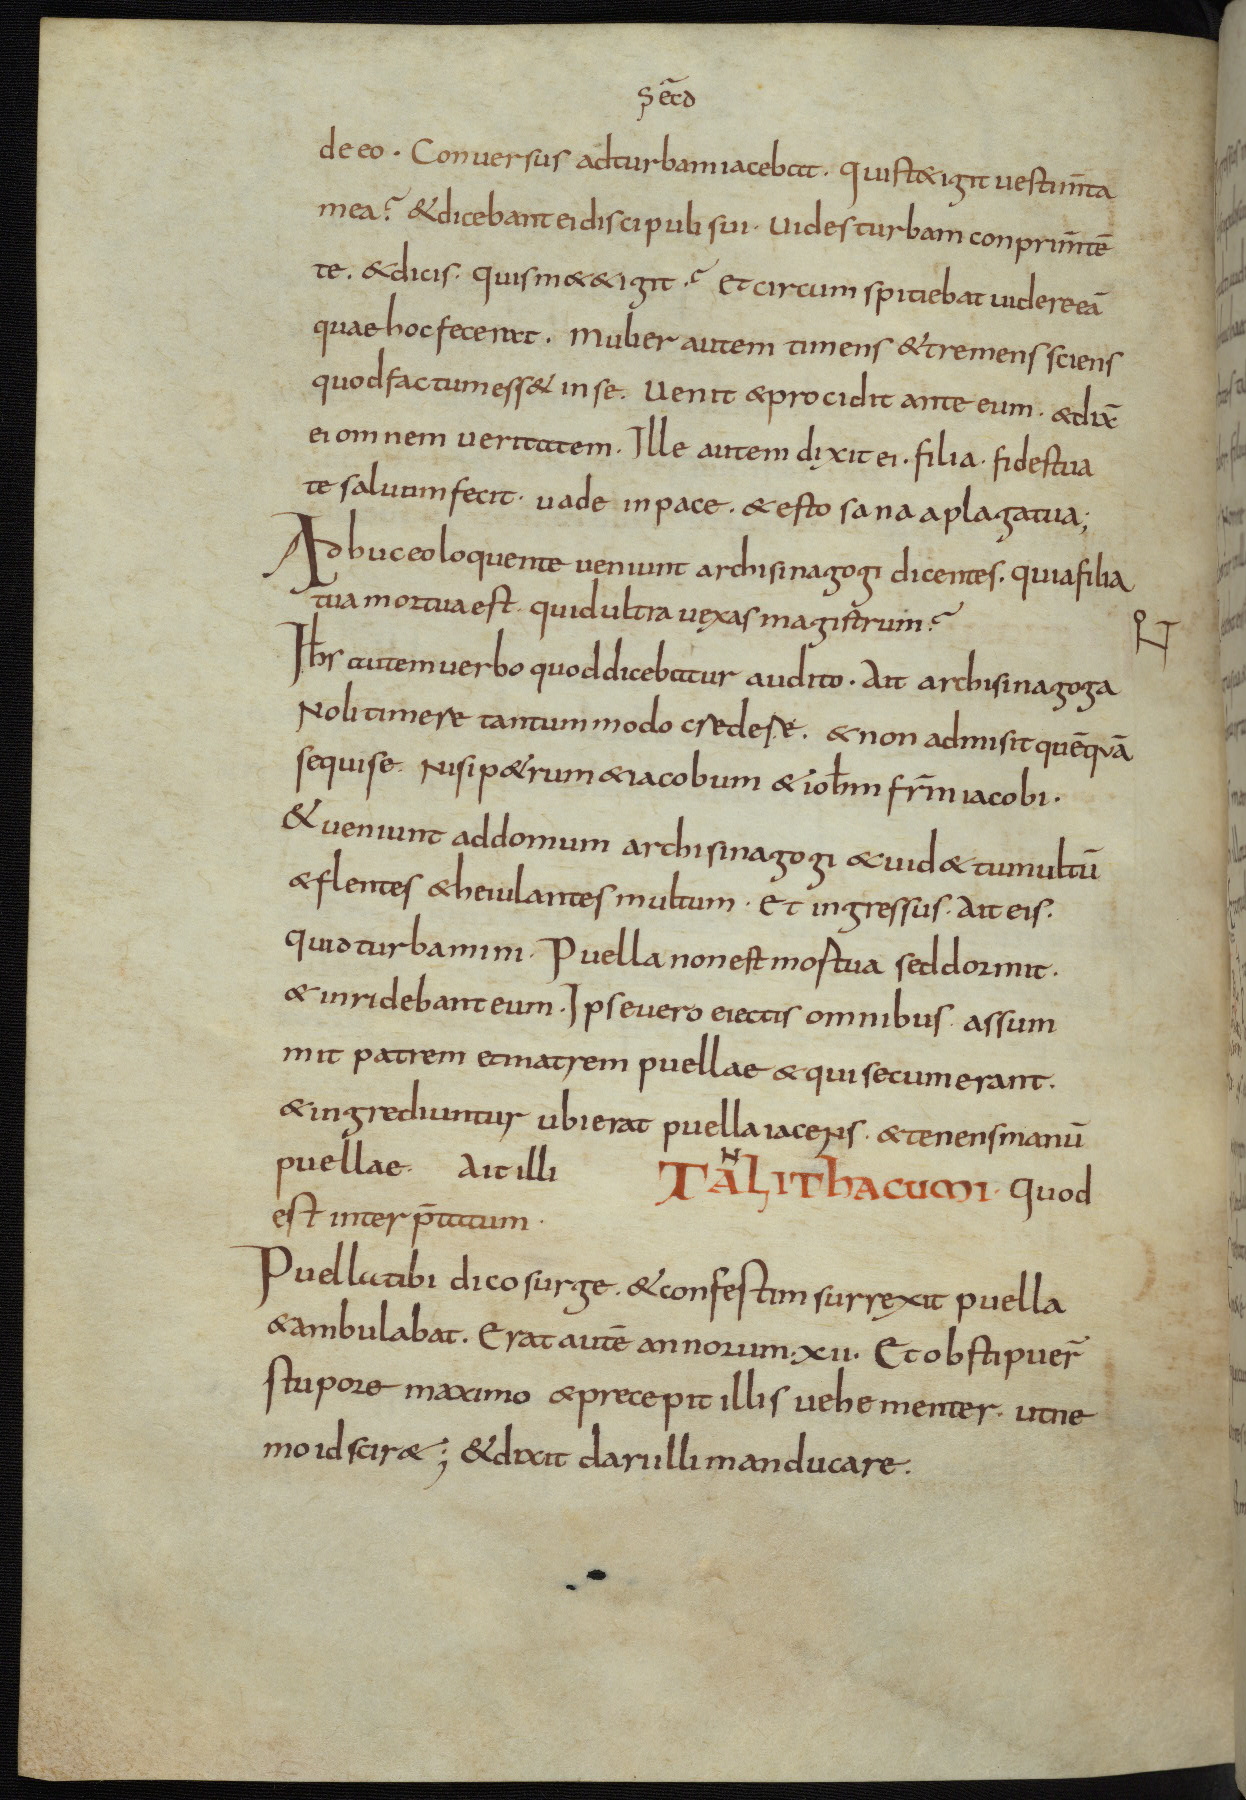 Sēcd
de eo. Conuersus adturbam iacebat. quist&igit uestim̄ta
mea? &dicebant eidiscipuli sui. Uides turbam conprim̄tē
te. &dicis. quism&&igit.? Et circum spitiebat uidere eā
quae hoc fecerat. Mulier autem timens &tremens sciens
quod factum ess& in se. Uenit &procidit ante eum. &dix̄
ei omnem ueritatem. Ille autem dixit ei. filia. fides tua
te saluam fecit. uade inpace. &esto sana a plaga tua;
Adhuc eo loquente ueniunt archisinagogi dicentes. quia filia
tua mortua est. quid ultra uexas magistrum?
Ihs autem uerbo quod dicebatur audito. Ait archisinagoga
Noli timere tantummodo credere. &non admisit quēquā
sequi se. Nisi p&rum &iacobum &ioh̄m fr̄m iacobi.
&ueniunt addomum archisinagogi &uid& tumultū
&flentes &heiulantes multum. Et ingressus. Ait eis.
quid turbamini. Puella non est mortua sed dormit.
&inridebant eum. Ipse uero eiectis omnibus. assum
mit patrem et matrem puellae &qui secum erant.
&ingrediuntur ubi erat puella iacens. &tenens manū
puellae. Ait illi TALITHACUMI. Quod
est interp̄tatum.
Puella tibi dico surge. &confestim surrexit puella
&ambulabat. Erat autē annorum. xii. Et obstipuer̄
stupore maximo &precepit illis uehementer. ut ne
mo id scir&; &dixit dari illi manducare.